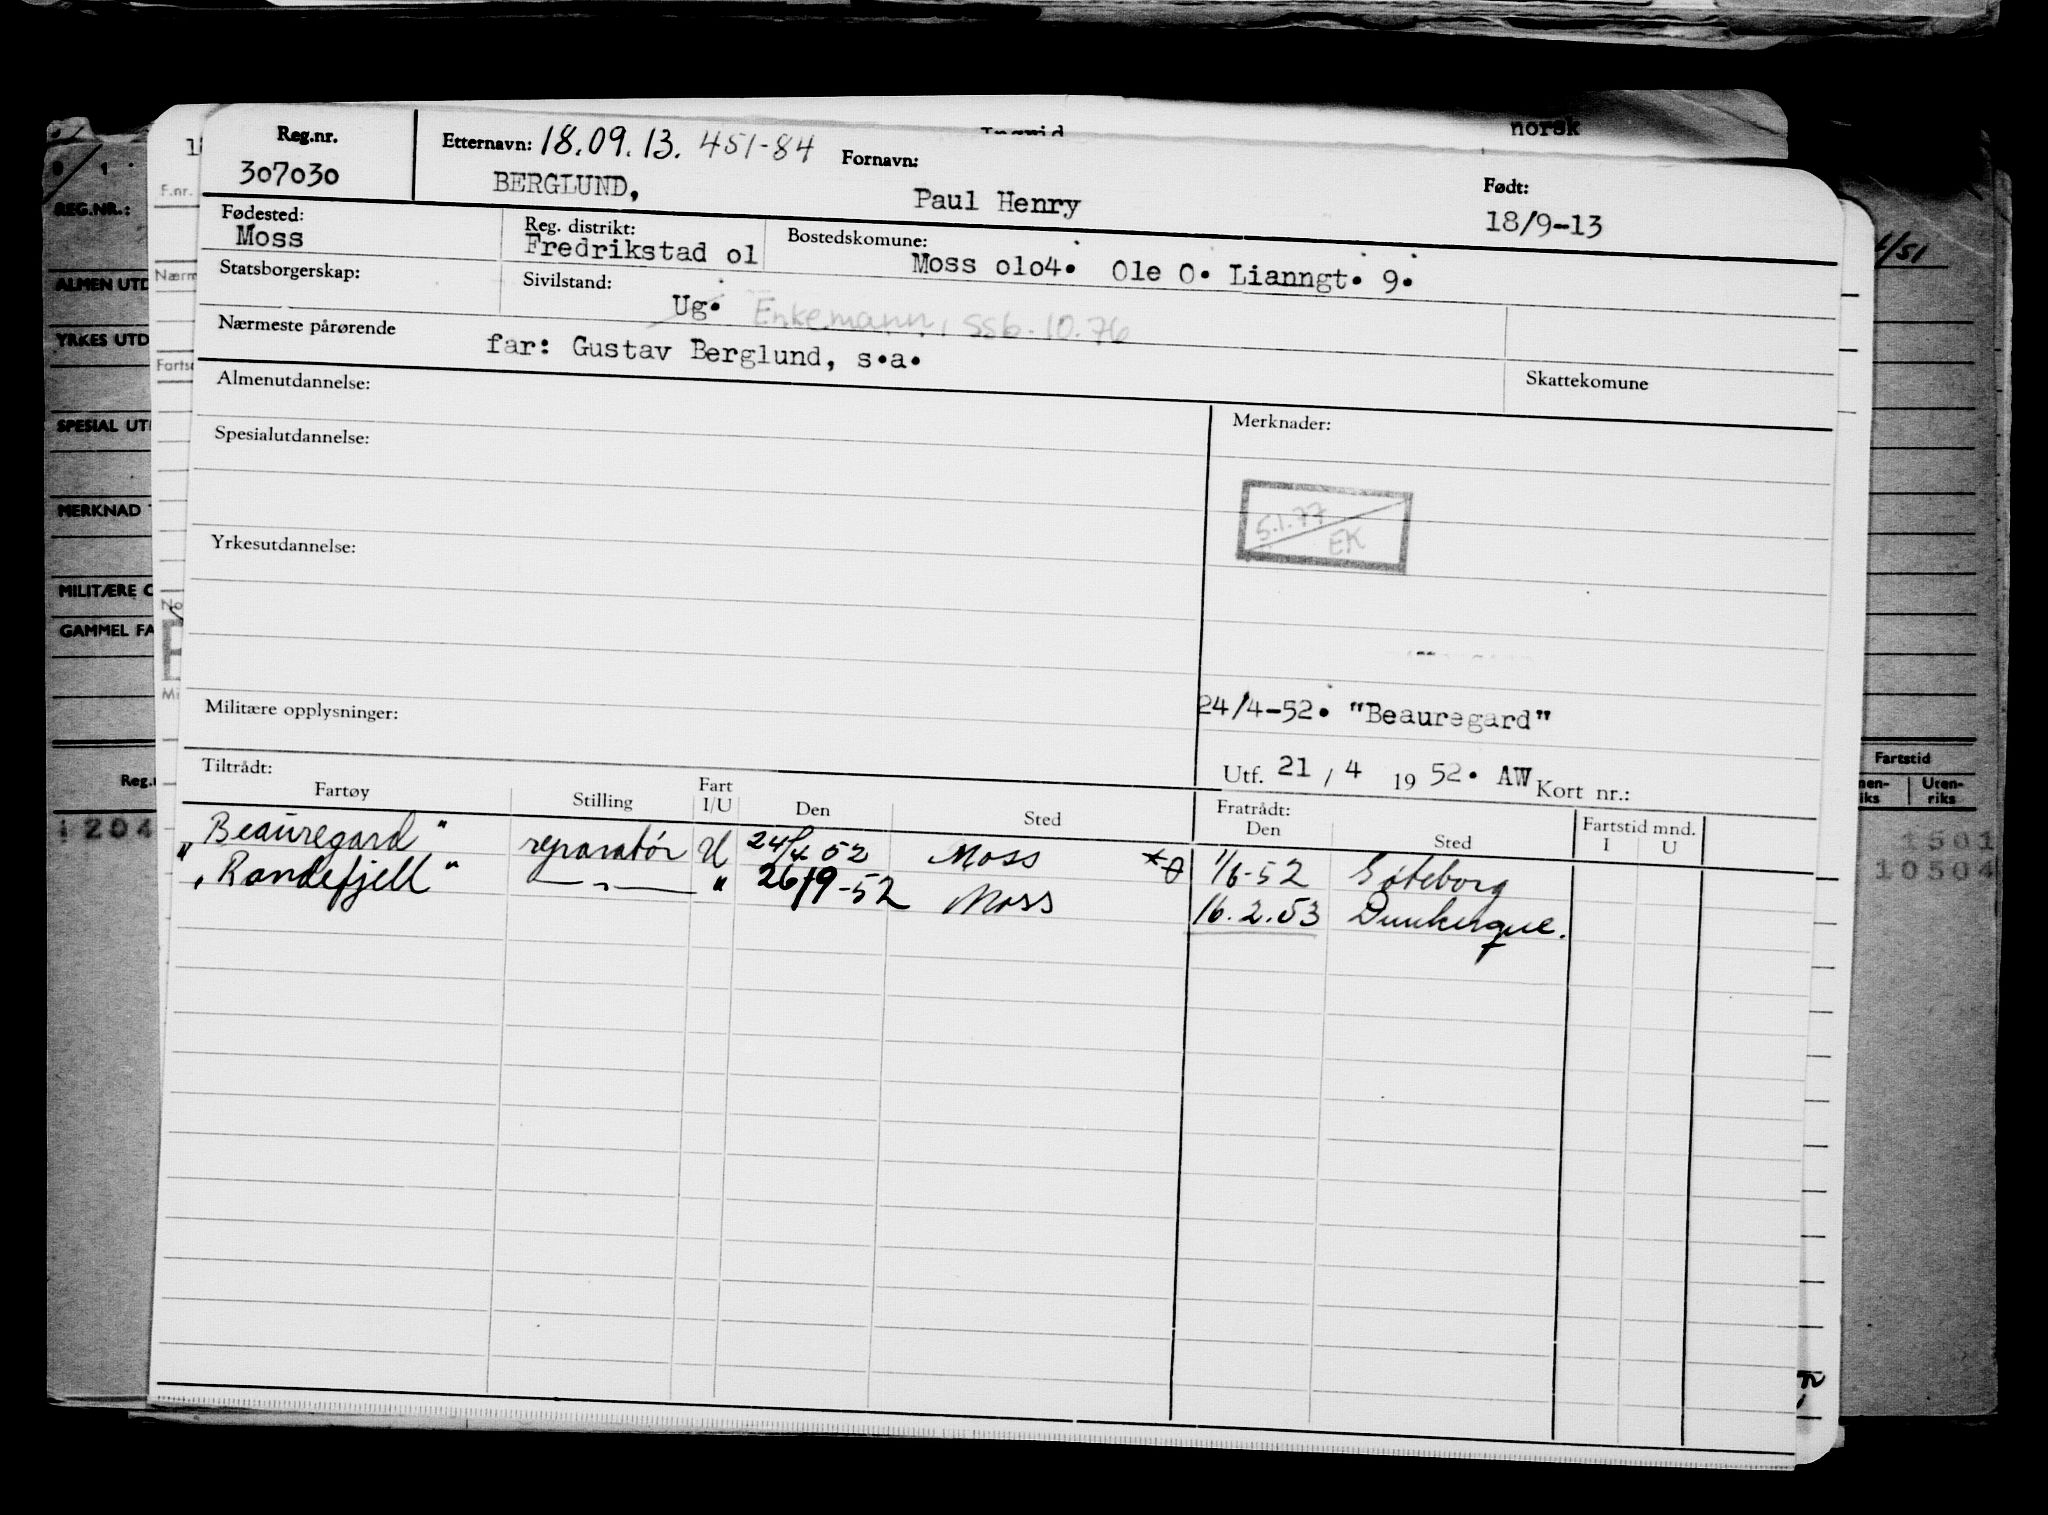 Ingrid norsk
Reg.nr. Etternavn: 18.09.13. 451-84 Fornavn: Født:
307030 BERGLUND, Paul Henry 18/9-13
Fødested: Reg. distrikt: Bostedskomune:
Moss Fredrikstad 01 Moss 0104. Ole O. Lianngt. 9.
Statsborgerskap: Sivilstand:
Ug. Enkemann, ssb. 10.76
Nærmeste pårørende far: Gustav Berglund, s.a.
Almenutdannelse: Skattekomune
Spesialutdannelse: Merknader:
5.1.77
EK
Yrkesutdannelse:
Militære opplysninger: 24/4-52. "Beauregard"
Utf. 21/4 1952. AW Kort nr.:
Tiltrådt: Fratrådt: Fartstid mnd.
Fartøy Stilling Fart I/U Den Sted Den Sted I U
"Beauregard" reparatør U 24/4 52 Moss 1/6-52 Gøteborg
"Randefjell" —"— " 26/9-52 Moss 16.2.53 Dunkerque.
F.nr.
Nærm
REG.NR.:
ALMEN UTD
YRKES UTD
SPESIAL UT
MERKNAD
MILITÆRE
GAMMEL FA
Reg.
1204
Fartstid
Uten-
riks
1501
10504